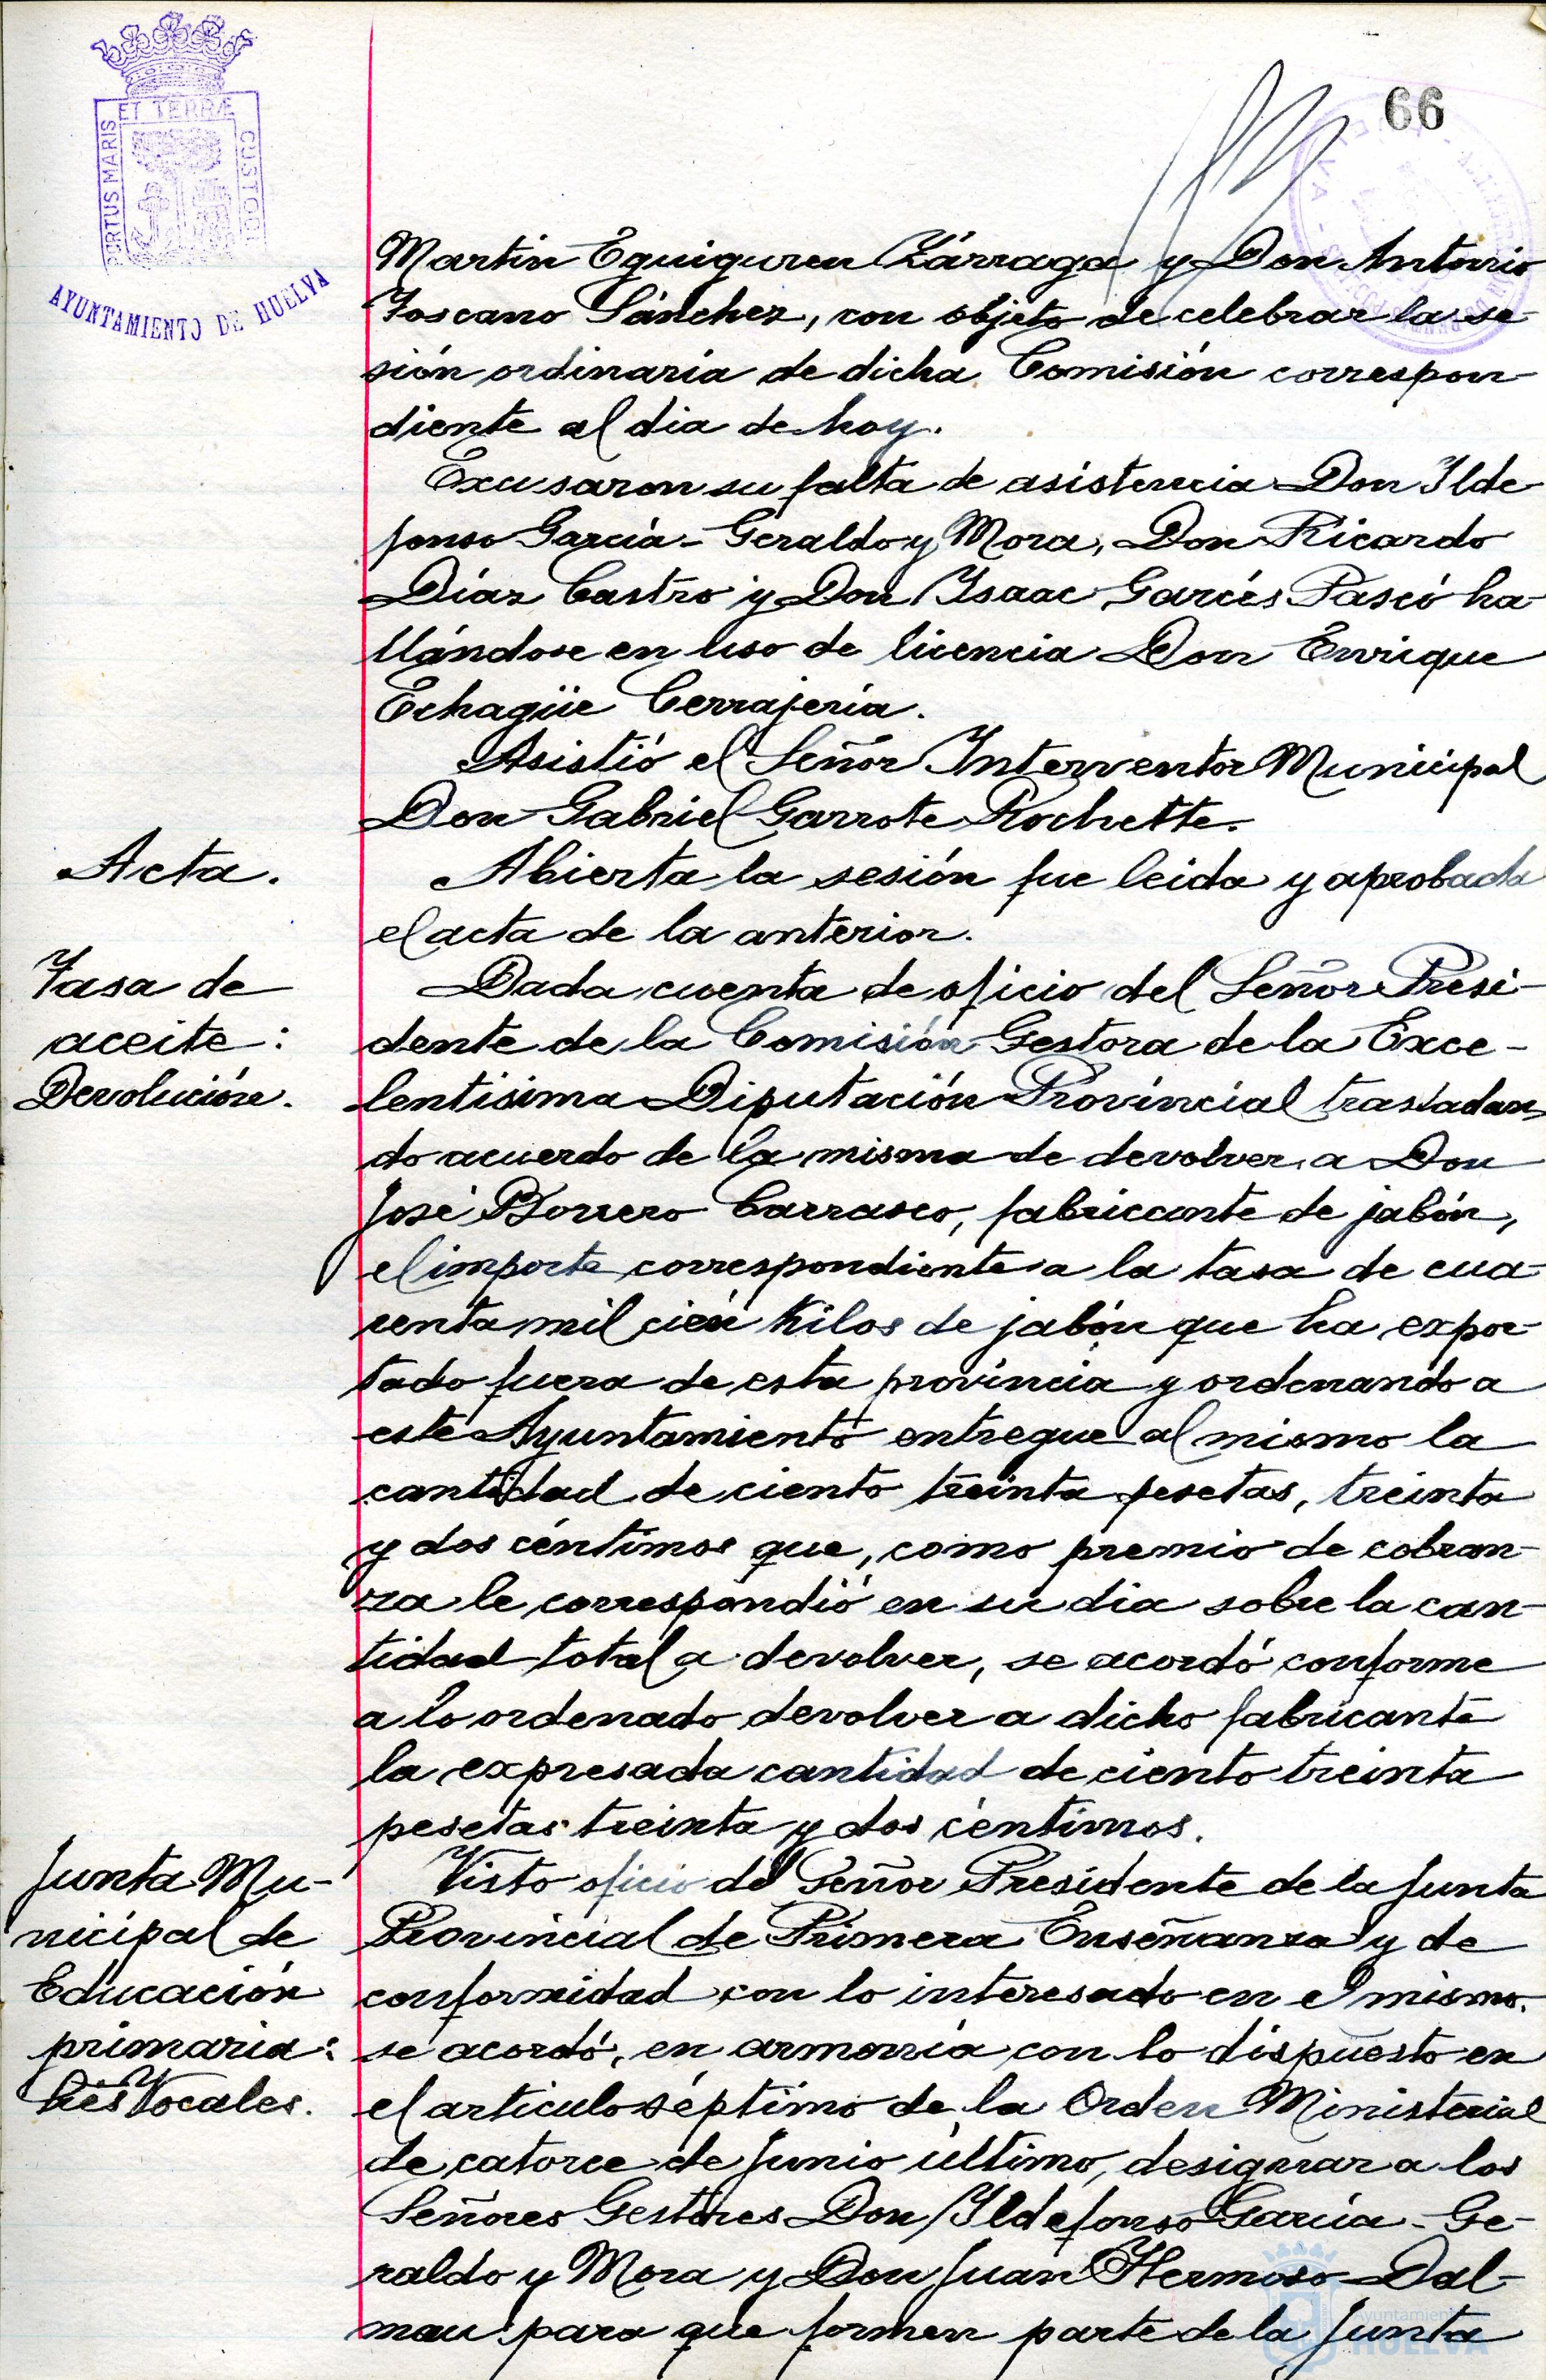 66
ET TERRÆ
PORTUS MARIS
CUSTODI
AYUNTAMIENTO DE HUELVA
Martin Eguiguren Zárraga y Don Antonio
Toscano Sánchez, con objeto de celebrar la se-
sión ordinaria de dicha Comisión correspon-
diente al dia de hoy.
Excusaron su falta de asistencia Don Ilde
fonso García-Geraldo y Mora, Don Ricardo
Díaz Castro y Don Isaac Garcés Pascó ha-
llándose en uso de licencia Don Enrique
Echagüe Cerrajería.
Asistió el Señor Interventor Municipal
Don Gabriel Garrote Rochette.
Acta.
Abierta la sesión fue leida y aprobada
el acta de la anterior.
Tasa de
aceite:
Devolución.
Dada cuenta de oficio del Señor Presi-
dente de la Comisión Gestora de la Exce-
lentísima Diputación Provincial trasladan
do acuerdo de la misma de devolver a Don
José Borrero Carrasco, fabricante de jabón,
el importe correspondiente a la tasa de cua-
renta mil cien Kilos de jabón que ha expor-
tado fuera de esta provincia y ordenando a
este Ayuntamiento entregue al mismo la
cantidad de ciento treinta pesetas, treinta
y dos céntimos que, como premio de cobran-
za le correspondió en su dia sobre la can-
tidad total a devolver, se acordó conforme
a lo ordenado devolver a dicho fabricante
la expresada cantidad de ciento treinta
pesetas treinta y dos céntimos.
Junta Mu-
nicipal de
Educación
primaria:
tres Vocales.
Visto oficio del Señor Presidente de la Junta
Provincial de Primera Enseñanza y de
conformidad con lo interesado en el mismo.
se acordó, en armonía con lo dispuesto en
el articulo séptimo de la Orden Ministerial
de catorce de Junio último, designar a los
Señores Gestores Don Ildefonso García-Ge-
raldo y Mora y Don Juan Hermoso Dal-
mau para que formen parte de la Junta
Ayuntamiento
HUELVA